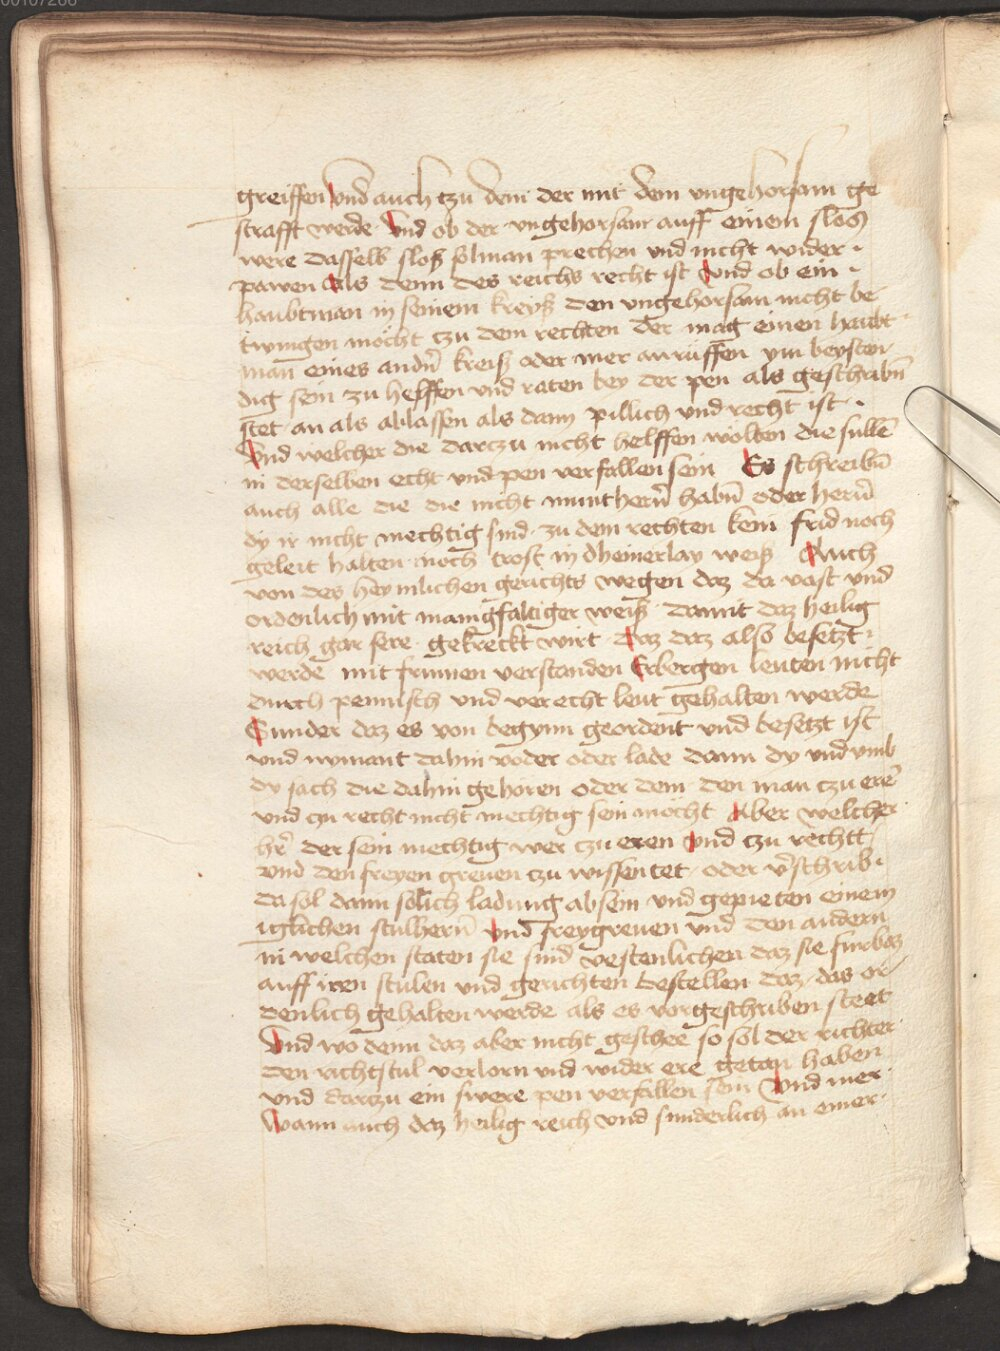 00107266
greiffen Und auch czu dem der mit dem ungehorsam ge
strafft werde Und ob der ungehorsam auff einem slos
were dasselb sloß solman prechen und nicht wider
pawen Als denn des reichs recht ist Und ob ein
haubtman in seinem kreyß den ungehorsam nicht be
twingen mocht czu dem rechten Der mag einen haubt
man eines andn̄ kreiß oder mer anruffen ym beysten
dig sein zu helffen und raten bey der pen als geschribn̄
stet an als ablassen als dann pillich und recht ist
Und welcher die darczu nicht helffen wolten die sullē
in derselben echt und pen verfallen sein Es schreibn̄
auch alle die die nicht munthern̄ habn̄ oder hern̄
dy ir nicht mechtig sind zu dem rechten kein frid noch
geleit halten noch trost in dheinerlay weiß Auch
von des heymlichen gerichts wegen daz da vast und
ordenlich mit manigfaltiger weiß damit daz heilig
reich gar sere gekreckt wirt Daz daz also besetzt
werde mit frumen verstanden Erbergen leuten nicht
durch pennisch und verecht leut gehalten werde
Sunder daz es von begynn geordent und besetzt ist
und nymant dahin voder oder lade dann dy und umb
dy sach die dahin gehoren oder dem den man czu erē
und czu recht nicht mechtig sein mocht Aber welcher
hr̄ der sein mechtig wer czu eren Und czu rechtt
und den freyen greven czu wissen tet oder v̄schrib
da sol dann solich ladung absein und gepieten einem
iglichen stulhern̄ Und freygreven und den andern
in welchen staten sie sind vestenlichen daz sie furbaz
auff iren stulen und gerichten bestellen daz das or
denlich gehalten werde als es vorgeschriben steet
Und wo denn daz aber nicht geschee so sol der richter
den richtstul verlorn und wider ere getan haben
und darczu ein swere pen verfallen sein Und mer
Wann auch daz heilig reich und sunderlich an einer